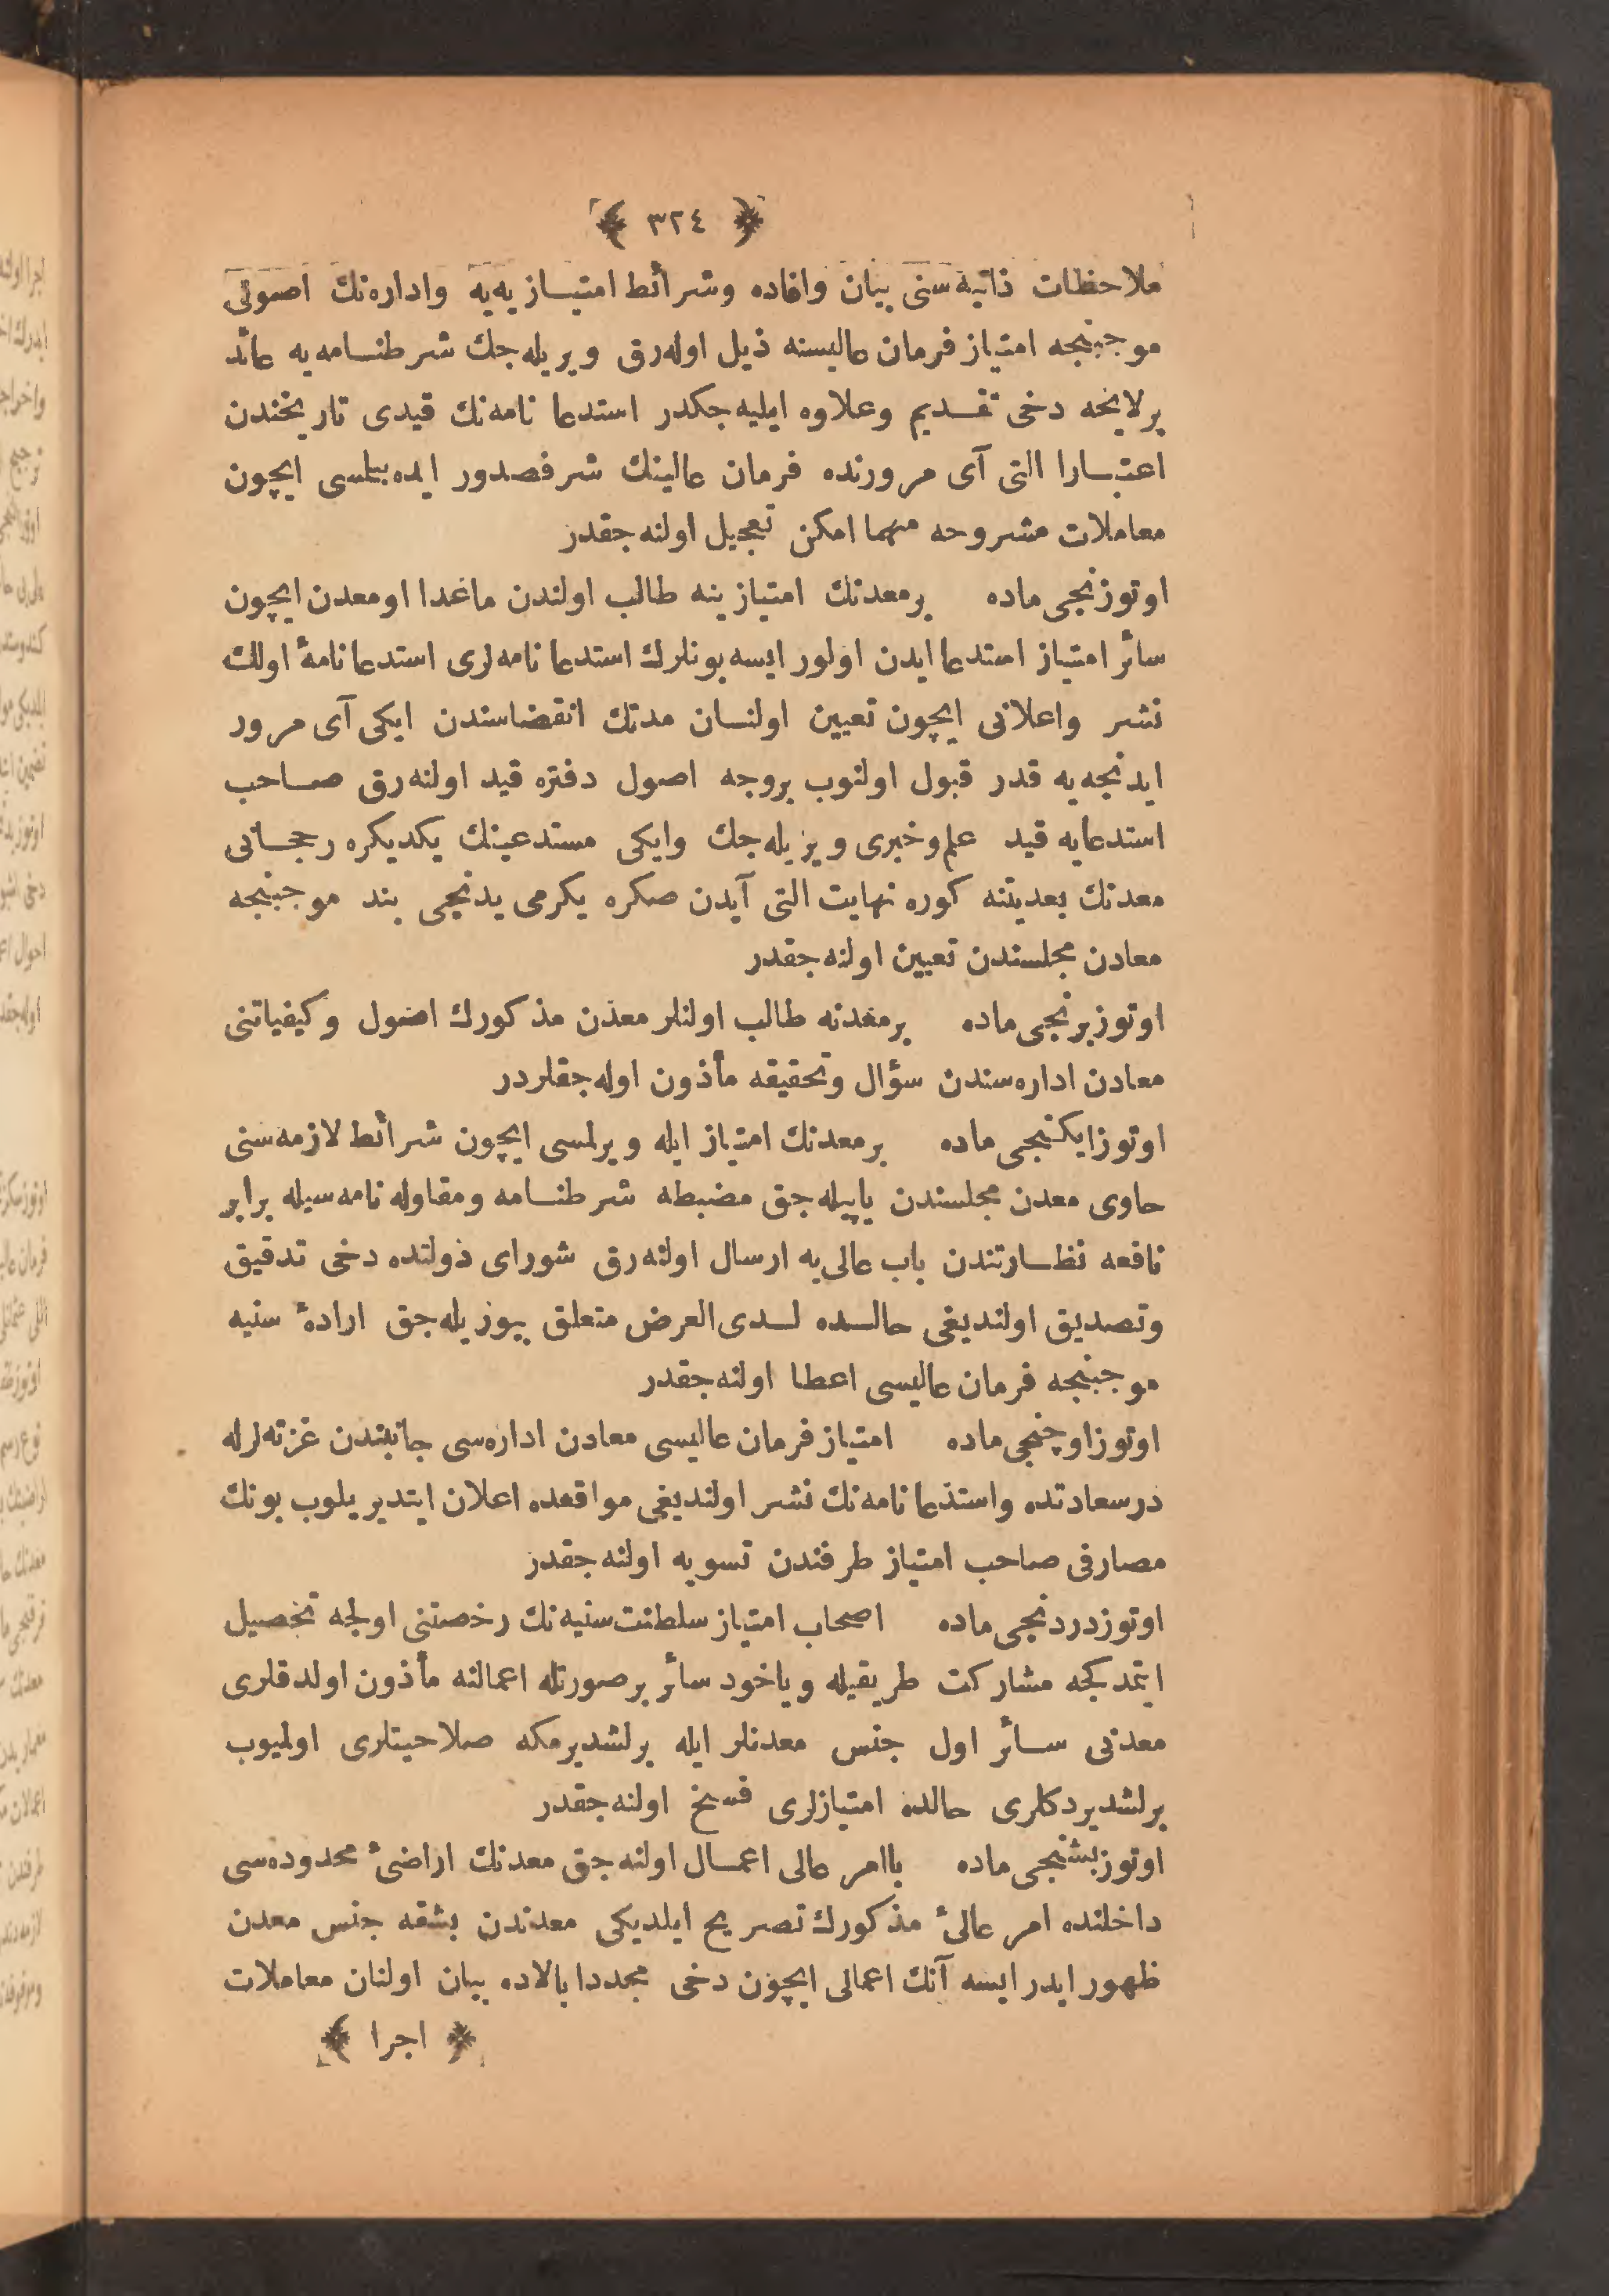 ﴿ ٣٢٤ ﴾
ملاحظات ذاتیه‌سنی بیان وافاده وشرائط امتیـازیه‌یه واداره‌نك اصولی
موجبنجه امتیاز فرمان عالیسنه ذیل اوله‌رق ویریله‌جك شرطنـامه‌یه عائد
برلایحه دخی تقـدیم وعلاوه ایلیه‌جكدر استدعا نامه‌نك قیدی تاریخندن
اعتبـارا التی آی مرورنده فرمان عالینك شرفصدور ایده‌بیلمسی ایچون
معاملات مشروحه مهما امكن تعجیل اولنه‌جقدر
اوتوزنجی‌ماده برمعدنك امتیازینه طالب اولندن ماعدا اومعدن ایچون
سائر امتیاز استدعا ایدن اولور ایسه بونلرك استدعا نامه‌لری استدعانامهٔ اولك
نشر واعلانی ایچون تعیین اولنـان مدتك انقضاسندن ایكی آی مرور
ایدنجه‌یه قدر قبول اولنوب بروجه اصول دفتره قید اولنه‌رق صـاحب
استدعایه قید علم‌وخبری ویریله‌جك وایكی مستدعینك یكدیكره رجحـانی
معدنك بعدیتنه كوره نهایت التی آیدن صكره یكرمی یدنجی بند موجبنجه
معادن مجلسندن تعیین اولنه‌جقدر
اوتوزبرنجی‌ماده برمعدنه طالب اولنلر معدن مذكورك اصول وكیفیاتنی
معادن اداره‌سندن سؤال وتحقیقه مأذون اوله‌جقلردر
اوتوزایكنجی‌ماده برمعدنك امتیاز ایله ویرلمسی ایچون شرائط لازمه‌سنی
حاوی معدن مجلسندن یاپیله‌جق مضبطه شرطنـامه ومقاوله نامه‌سیله برابر
نافعه نظـارتندن باب عالی‌یه ارسال اولنه‌رق شورای دولتده دخی تدقیق
وتصدیق اولندیغی حالـده لـدی‌العرض متعلق بیوریله‌جق ارادهٔ سنیه
موجبنجه فرمان عالیسی اعطا اولنه‌جقدر
اوتوزاوچنجی‌ماده امتیاز فرمان عالیسی معادن اداره‌سی جانبندن غزته‌لرله
درسعادتده واستدعا نامه‌نك نشر اولندیغی مواقعده اعلان ایتدیریلوب بونك
مصارفی صاحب امتیاز طرفندن تسویه اولنه‌جقدر
اوتوزدردنجی‌ماده اصحاب امتیاز سلطنت‌سنیه‌نك رخصتنی اولجه تحصیل
ایتمدكجه مشاركت طریقیله ویاخود سائر برصورتله اعمالنه مأذون اولدقلری
معدنی سـائر اول جنس معدنلر ایله برلشدیرمكه صلاحیتلری اولمیوب
برلشدیردكلری حالده امتیازلری فسخ اولنه‌جقدر
اوتوزبشنجی‌ماده باامر عالی اعمـال اولنه‌جق معدنك اراضیٔ محدوده‌سی
داخلنده امر عالیٔ مذكورك تصریح ایلدیكی معدندن بشقه جنس معدن
ظهور ایدر ایسه آنك اعمالی ایچون دخی مجددا بالاده بیان اولنان معاملات
﴿ اجرا ﴾